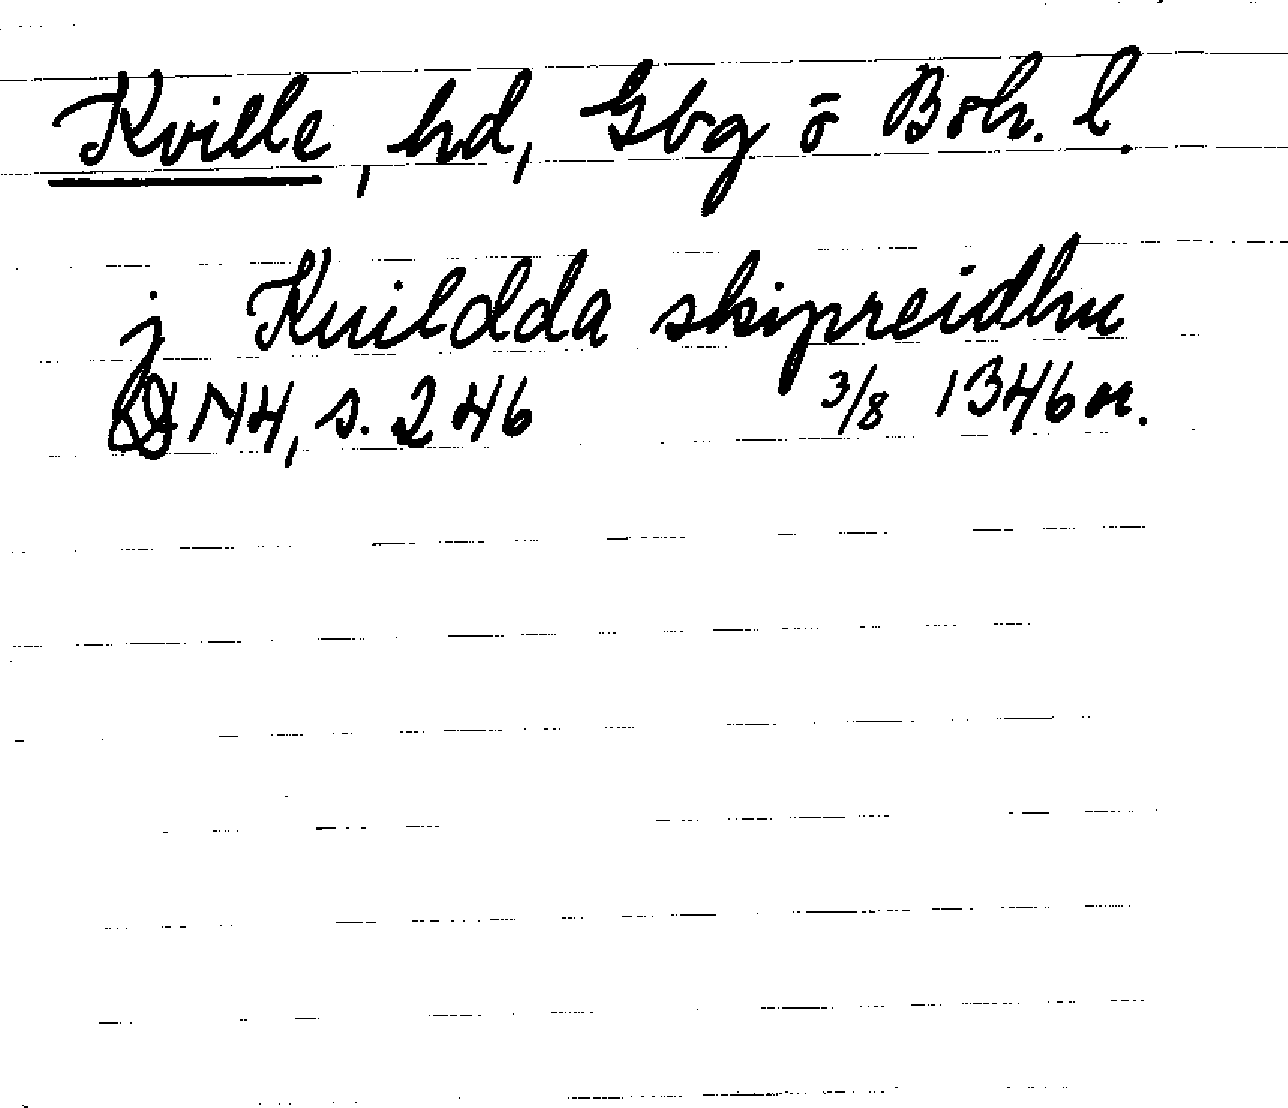 Kville, hd, Gbg ō Boh. l.
j Kuildda skipreidhu
DN4, s. 246 3/8 1346 or.